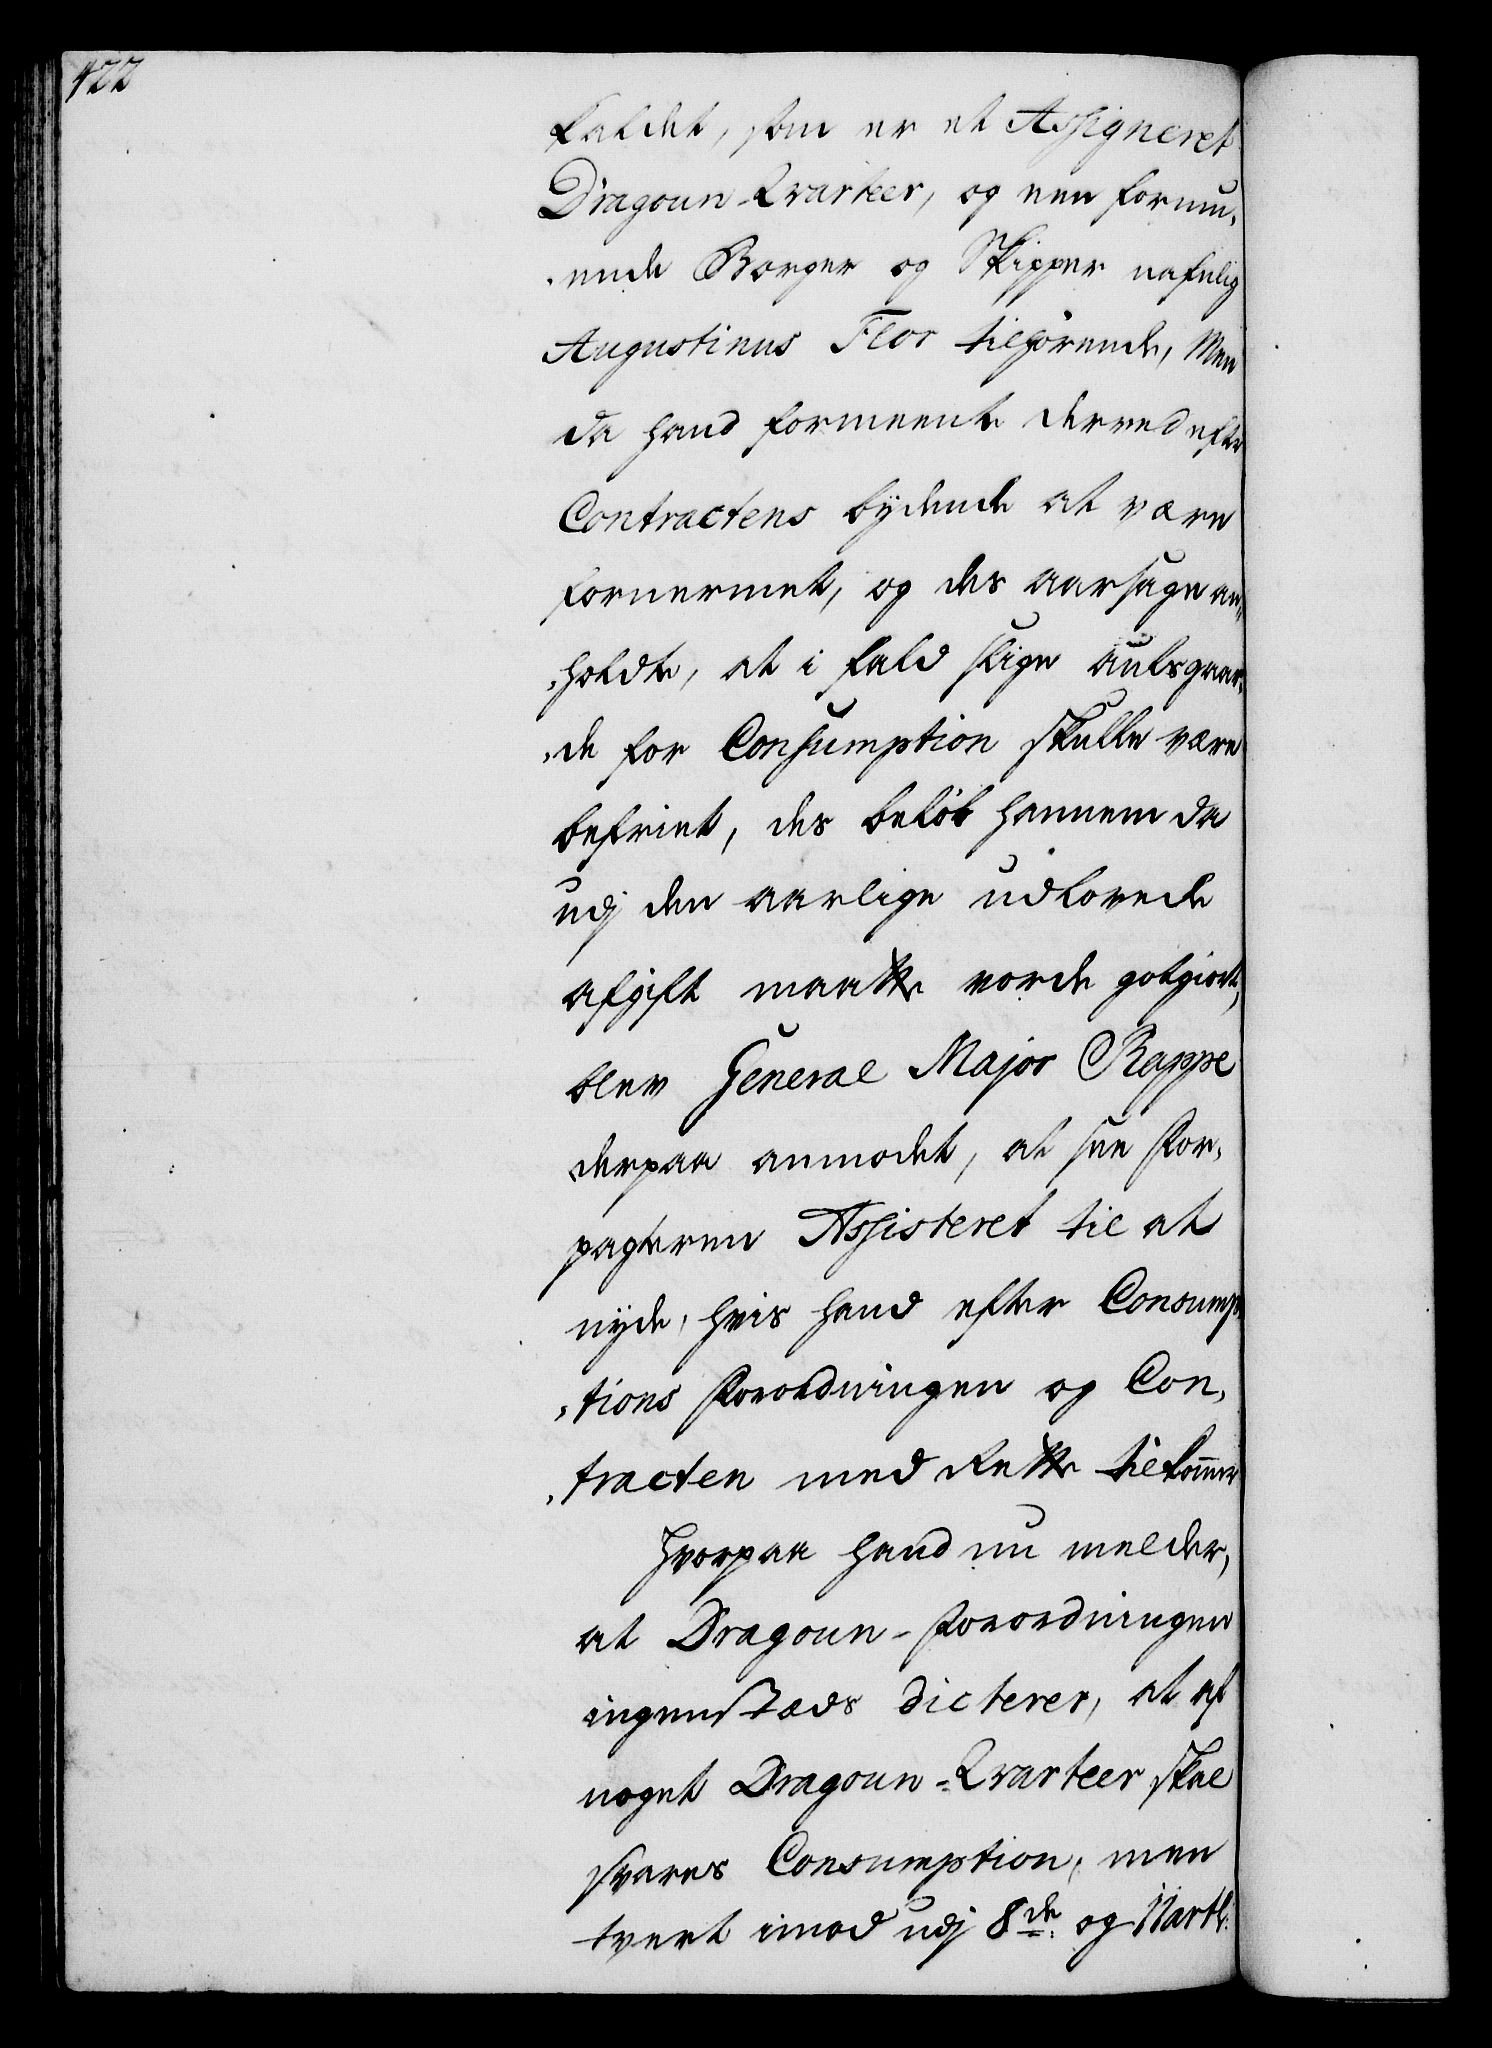 422
kaldet, som er et Assigneret
Dragoun-Qvarteer, og een formu-
-ende Borger og Skipper nafnlig
Augustinus Flor tilhørende, Men
da hand formeente derved efter
Contractens bydende at være
fornermet, og des aarsage an-
-holdte, at i fald slige aulsgaar-
-de for Consumption skulle være
befriet, des beløb hannem da
udj den aarlige udlovede
afgift maatte vorde gotgiort,
blev General Major Rappe
derpaa anmodet, at see For-
pagteren Assisteret til at
nyde, hvis hand efter Consump-
-tions Forordningen og Con-
-tracten med Rette tilkommer
Hvorpaa hand nu melder,
at Dragoun-Forordningen
ingenstæds dicterer, at af
noget Dragoun-Qvarteer skal
svares Consumption, men
tvert imod udj 8de og 11 artl: